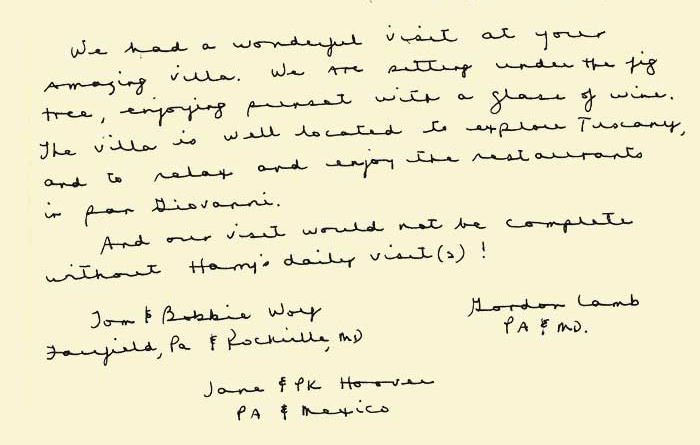 We had a wonderful visit at your
amazing villa. We are sitting under the fig
tree, enjoying sunset with a glass of wine.
The villa is well located to explore Tuscany,
and to relax and enjoy the restaurants
in San Giovanni.
And our visit would not be complete
without Harry's daily visit(s)!
Tom & Bobbie Wolf
Fairfield, Pa & Rockville, MD
Gordon Lamb
PA & MD.
Jane & PK Hoover
PA & Mexico